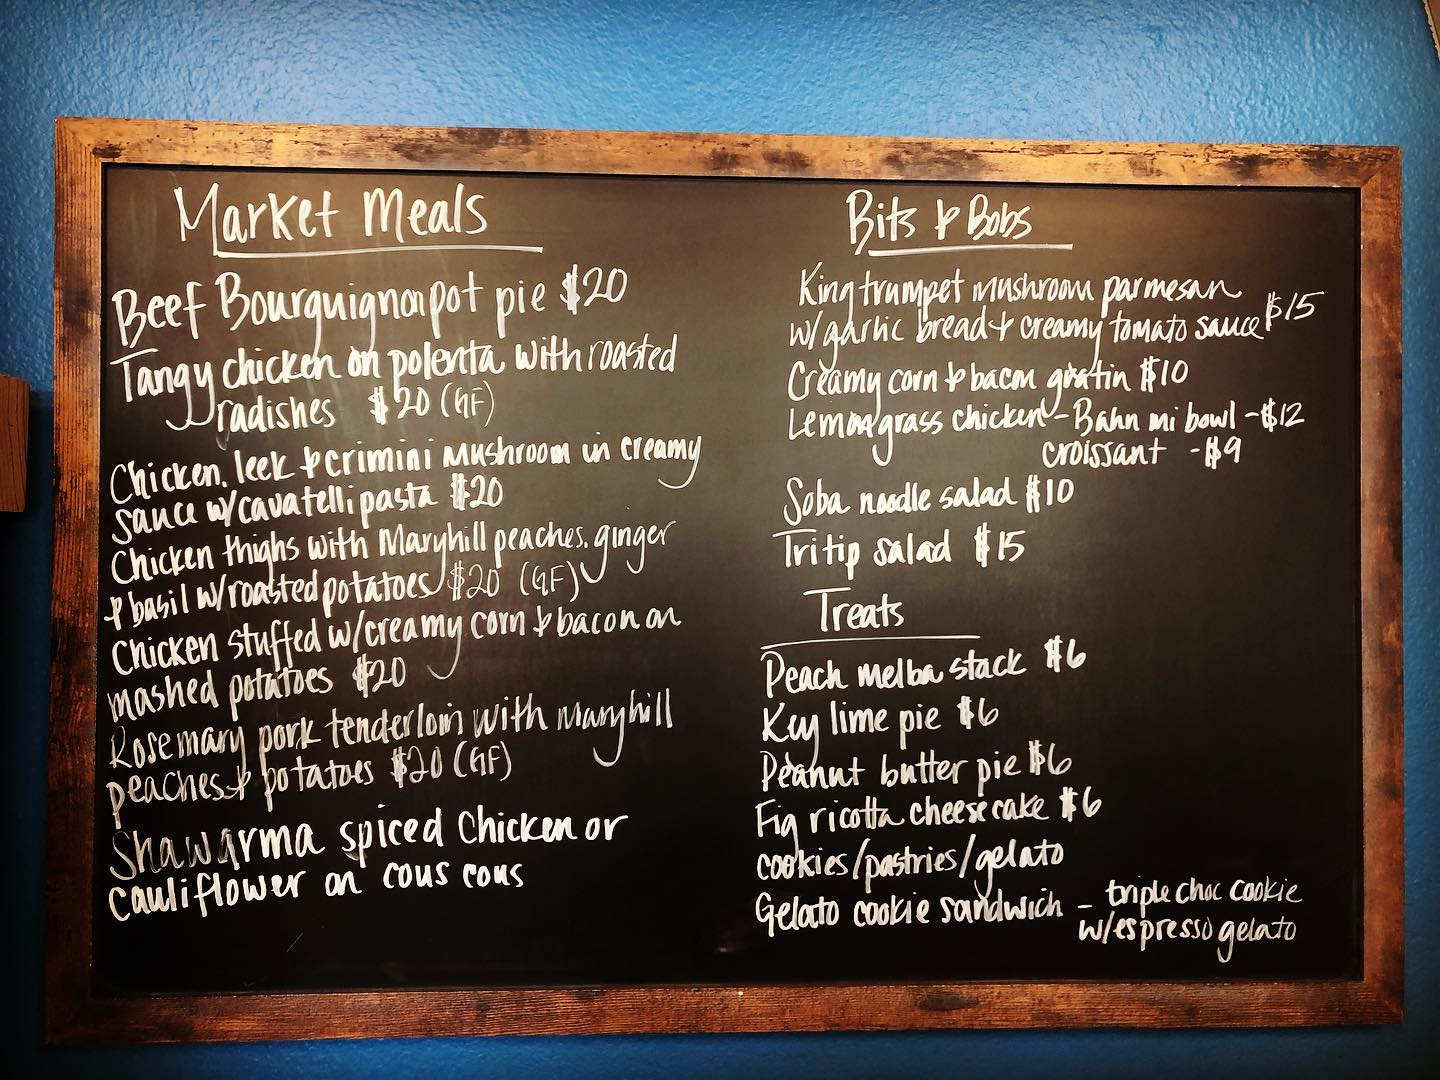 Market Meals
Beef Bourguignon pot pie $20
Tangy chicken on polenta with roasted
radishes $20 (GF)
Chicken, leek & crimini mushroom in creamy
sauce w/cavatelli pasta $20
Chicken thighs with Maryhill peaches, ginger
& basil w/roasted potatoes $20 (GF)
Chicken stuffed w/creamy corn & bacon on
mashed potatoes $20
Rosemary pork tenderloin with Maryhill
peaches & potatoes $20 (GF)
Shawarma spiced chicken or
cauliflower on cous cous
Bits & Bobs
King trumpet mushroom parmesan
w/garlic bread & creamy tomato sauce $15
Creamy corn & bacon gratin $10
Lemongrass chicken - Bahn mi bowl - $12
croissant - $9
Soba noodle salad $10
Tri tip salad $15
Treats
Peach melba stack $6
Key lime pie $6
Peanut butter pie $6
Fig ricotta cheesecake $6
cookies/pastries/gelato
Gelato cookie sandwich - triple choc cookie
w/espresso gelato